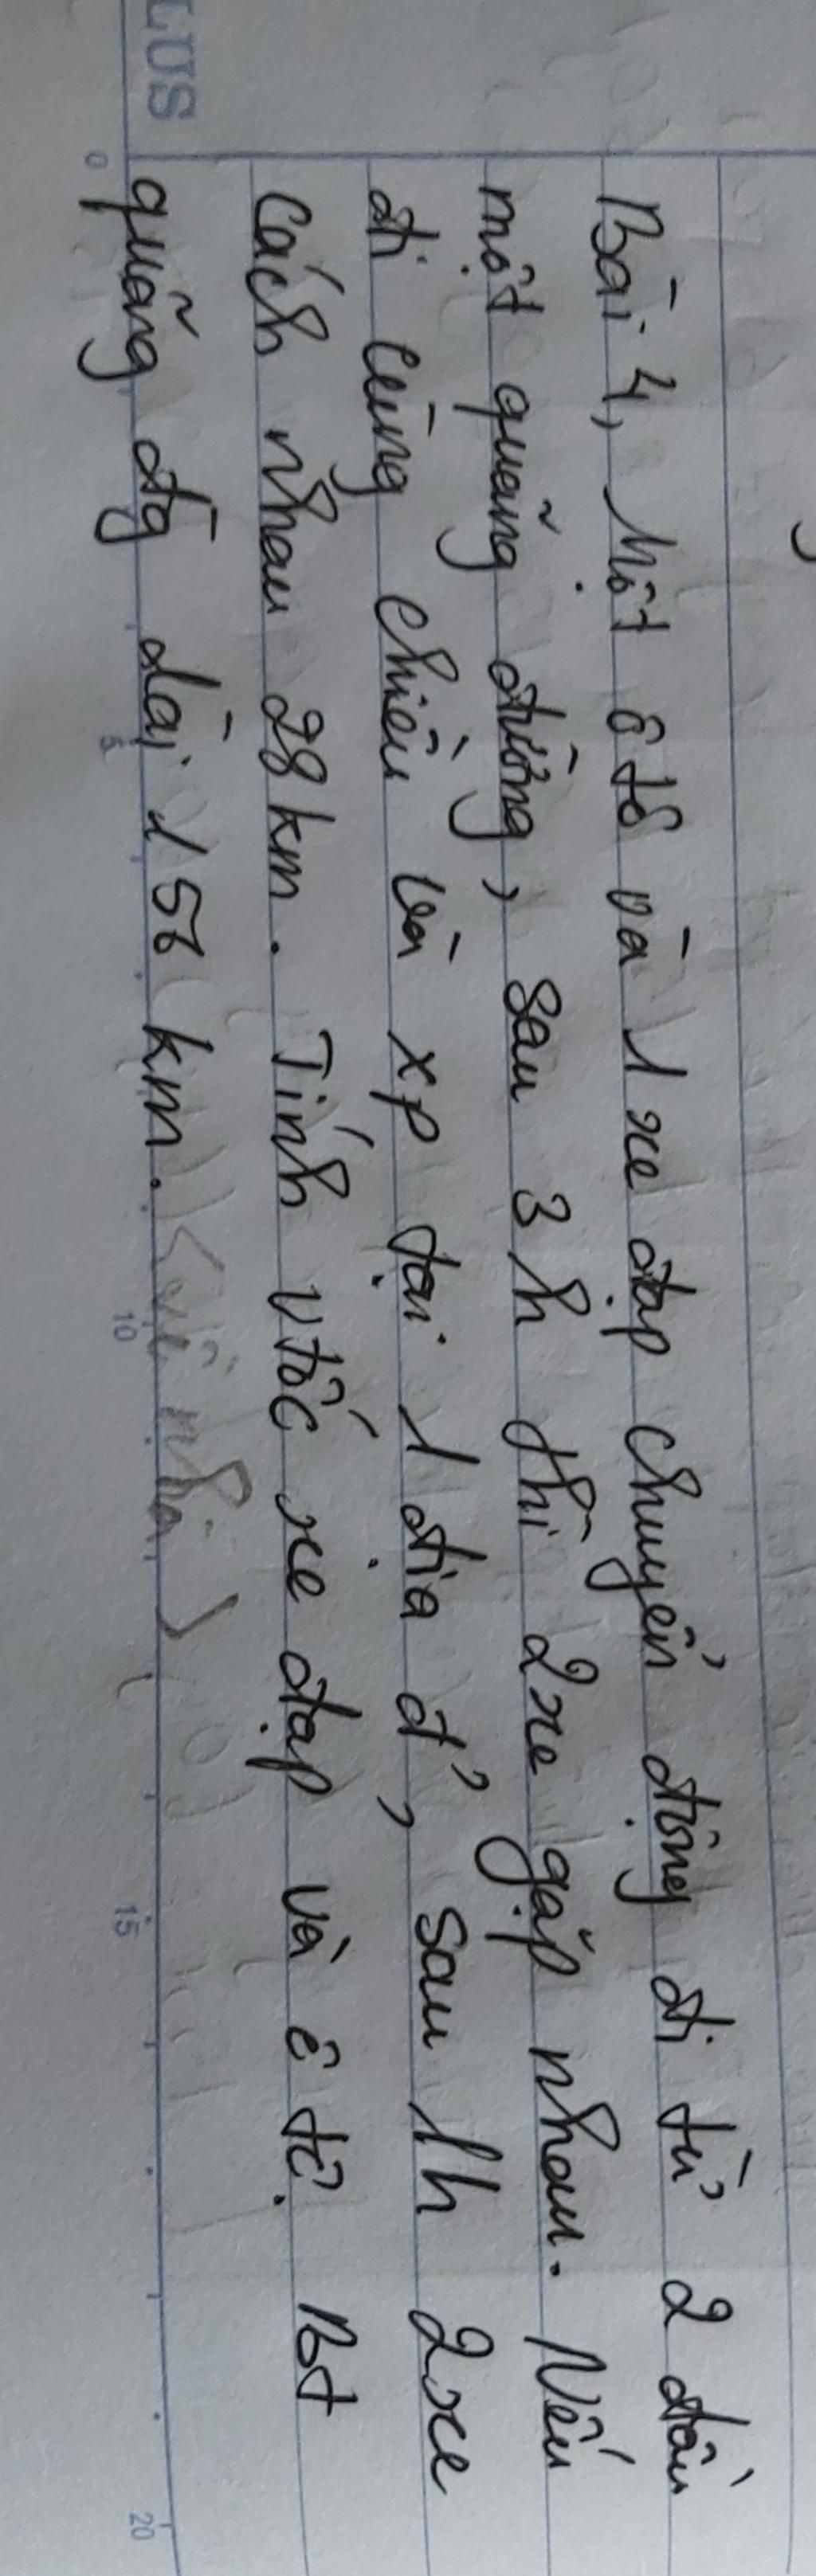 LUS
Bài 4, Một ô tô và 1 xe đạp chuyển động đi từ 2 đầu
một quãng đường, sau 3h thì 2xe gặp nhau. Nếu
đi cùng chiều và xp tại 1 địa đ', sau 1h 2xe
cách nhau 28km. Tính vtốc xe đạp và ô tô. Bt
quãng đg dài 156 km. (về nhà)
0 5 10 15 20